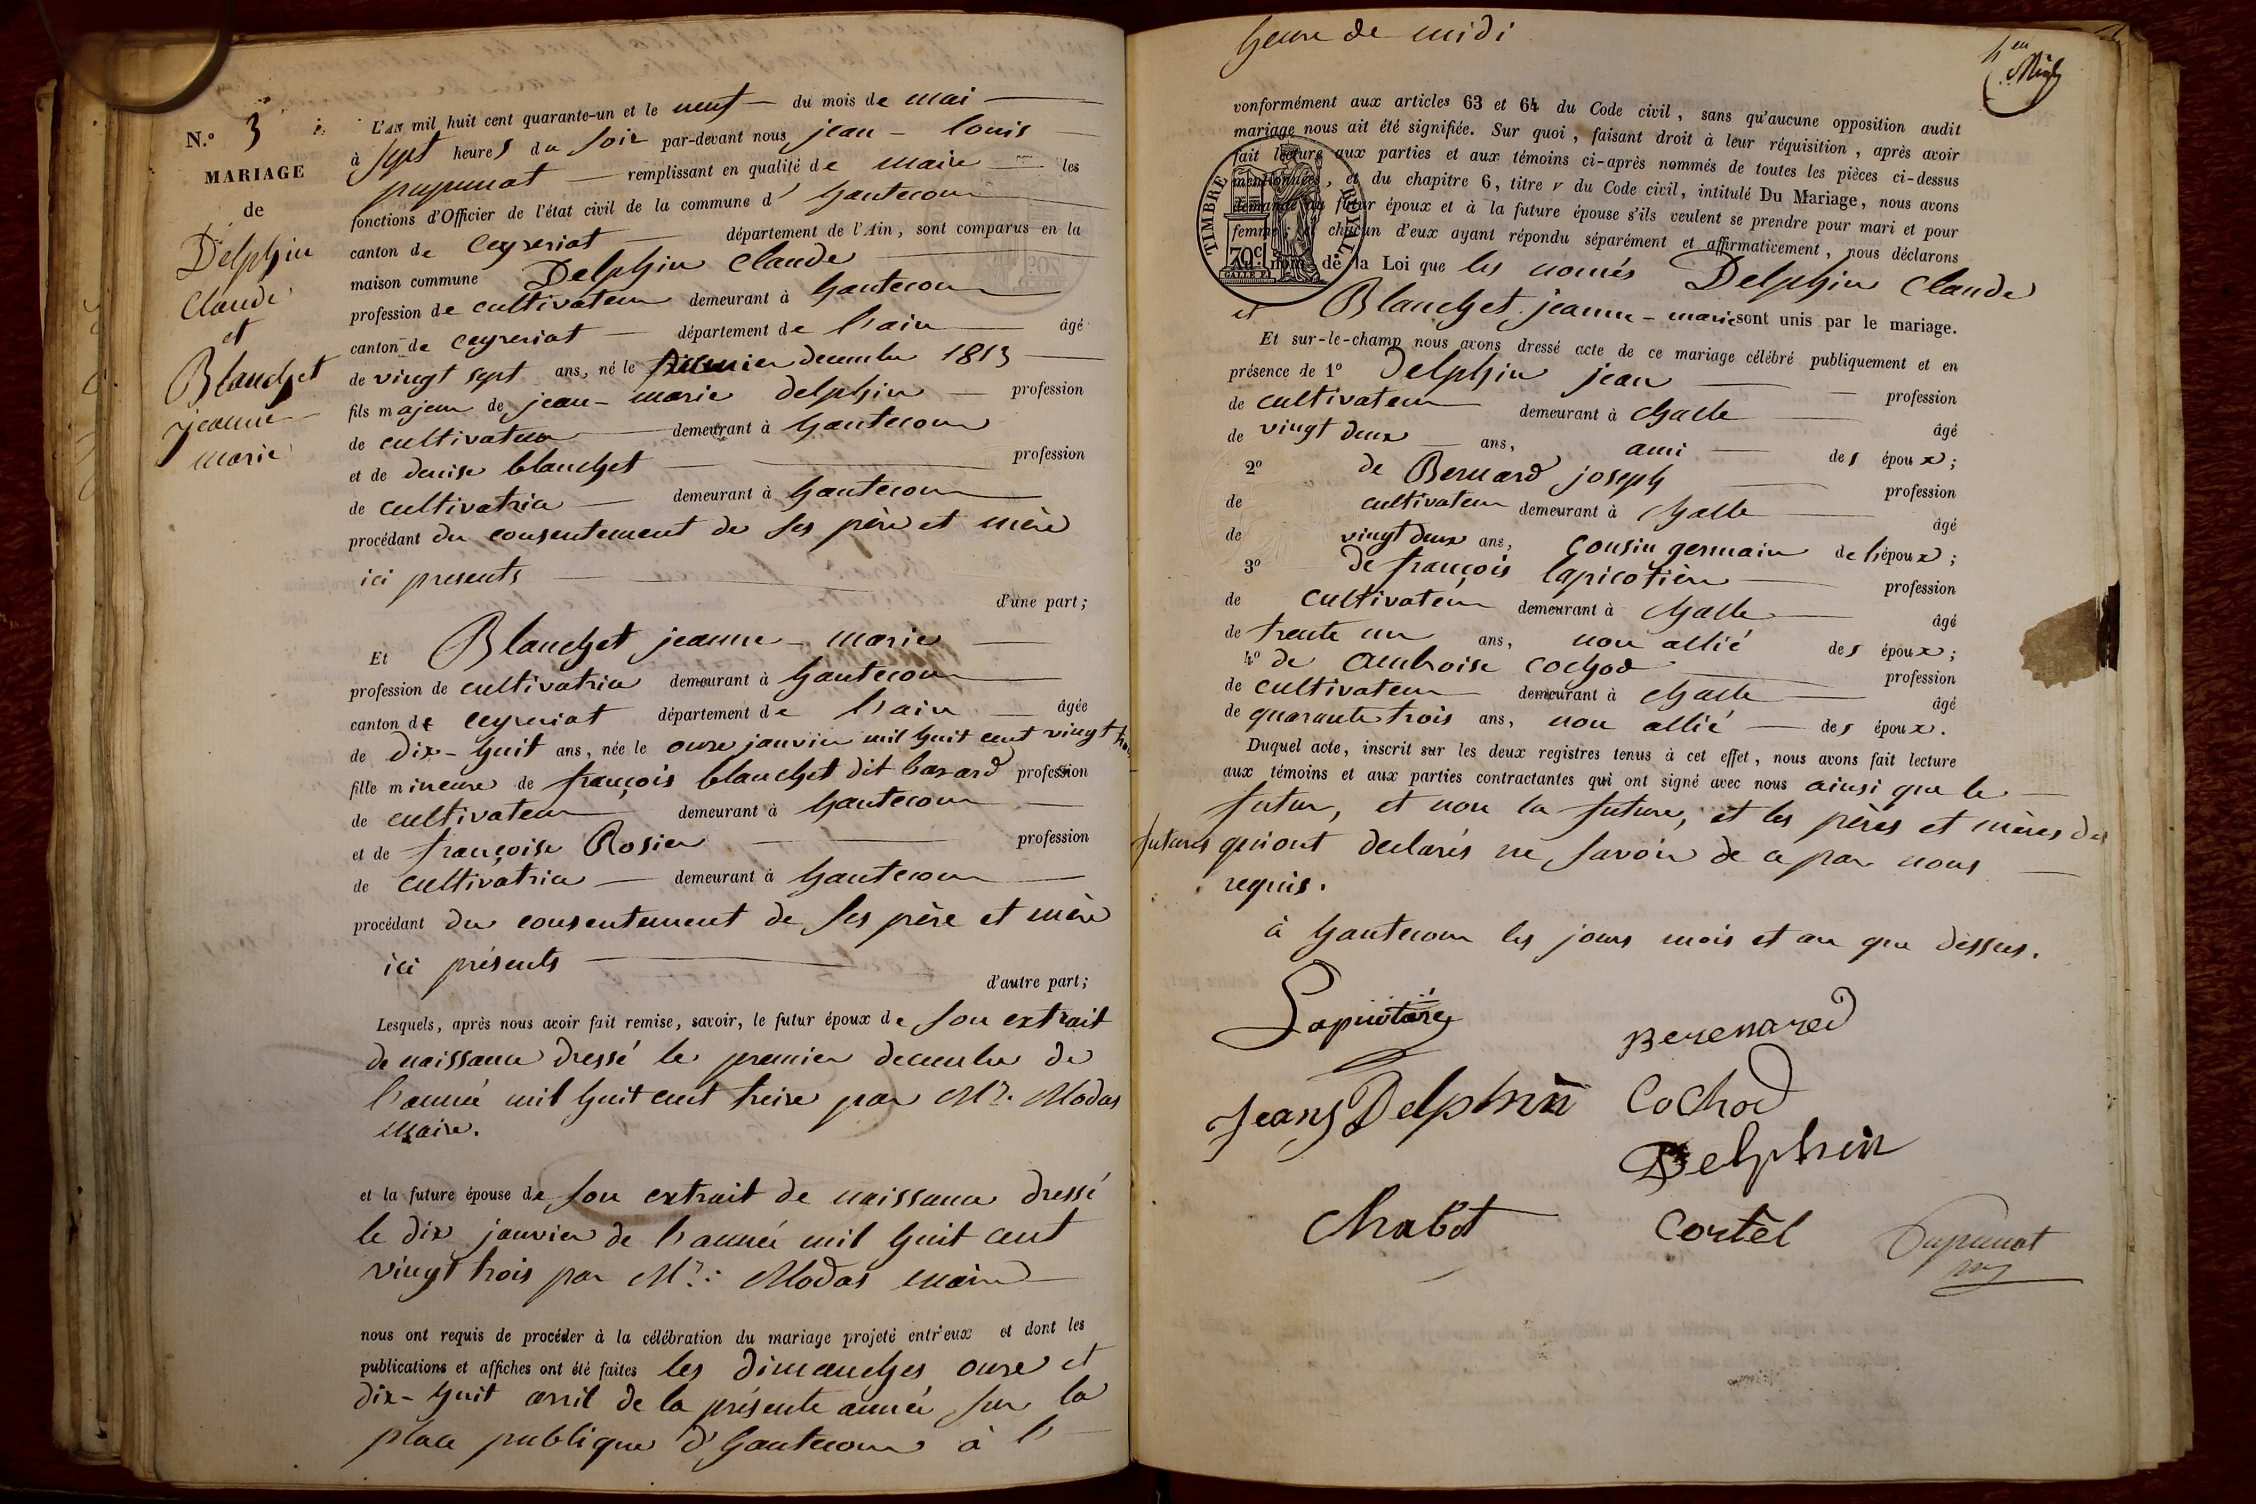 N.º 3
MARIAGE
de
Delphin
Claude
et
Blanchet
jeanne
marie
L'AN mil huit cent quarante-un et le neuf du mois de mai
à sept heures du soir par-devant nous jean - louis
pupunat remplissant en qualité de maire les
fonctions d'Officier de l'état civil de la commune d' hautecour
canton de ceyzeriat département de l'Ain, sont comparus en la
maison commune Delphin Claude
profession de cultivateur demeurant à hautecour
canton de ceyzeriat département de l'ain âgé
de vingt sept ans, né le premier decembre 1813
fils majeur de jean - marie delphin profession
de cultivateur demeurant à hautecour
et de denise blanchet profession
de cultivatrice demeurant à hautecour
procédant du consentement de ses père et mère
ici presents
d'une part;
Et Blanchet jeanne - marie
profession de cultivatrice demeurant à hautecour
canton de ceyzeriat département de l'ain âgée
de dix - huit ans, née le onze janvier mil huit cent vingt trois
fille mineure de françois blanchet dit bavard profession
de cultivateur demeurant à hautecour
et de françoise Rosier profession
de cultivatrice demeurant à hautecour
procédant du consentement de ses père et mère
ici présents
d'autre part;
Lesquels, après nous avoir fait remise, savoir, le futur époux de son extrait
de naissance dressé le premier decembre de
l'année mil huit cent treize par Mr. Modas
maire.
et la future épouse de son extrait de naissance dressé
le dix janvier de l'année mil huit cent
vingt trois par Mr: Modas maire
nous ont requis de procéder à la célébration du mariage projeté entr'eux et dont les
publications et affiches ont été faites les dimanches onze et
dix - huit avril de la présente année sur la
place publique d'hautecour à l'
heure de midi
conformément aux articles 63 et 64 du Code civil, sans qu'aucune opposition audit
mariage nous ait été signifiée. Sur quoi, faisant droit à leur réquisition, après avoir
fait lecture aux parties et aux témoins ci-après nommés de toutes les pièces ci-dessus
mentionnées, et du chapitre 6, titre v du Code civil, intitulé Du Mariage, nous avons
demandé au futur époux et à la future épouse s'ils veulent se prendre pour mari et pour
femme; et chacun d'eux ayant répondu séparément et affirmativement, nous déclarons
au nom de la Loi que les només Delphin Claude
et Blanchet jeanne - marie sont unis par le mariage.
TIMBRE ROYAL
70c
Et sur-le-champ nous avons dressé acte de ce mariage célébré publiquement et en
présence de 1º Delphin jean profession
de cultivateur demeurant à Challe âgé
de vingt deux ans, ami des époux;
2º de Bernard joseph profession
de cultivateur demeurant à Challe âgé
de vingt deux ans, cousin germain de l'époux;
3º de françois lapicotière profession
de cultivateur demeurant à Challe âgé
de trente un ans, non allié des époux;
4º de ambroise cochod profession
de cultivateur demeurant à Challe âgé
de quarante trois ans, non allié des époux.
Duquel acte, inscrit sur les deux registres tenus à cet effet, nous avons fait lecture
aux témoins et aux parties contractantes qui ont signé avec nous ainsi que le
futur, et non la future, et les pères et mères des
futurs qui ont declarés ne savoir de ce par nous
requis.
à hautecour les jours mois et an que dessus.
Bernard
Jean Delphin
CoChod
Delphin
Chabot
Cortel
Pupunat